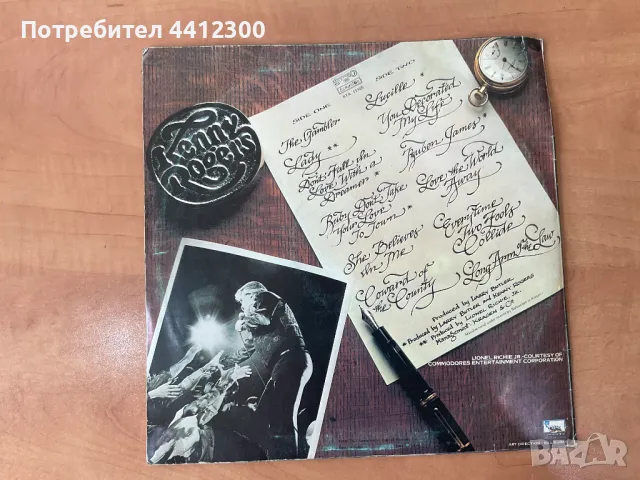 Потребител 4412300
KENNY
ROGERS
STEREO
SIDE ONE
The Gambler
Lady **
Don't Fall In
Love With a
Dreamer *
Ruby Don't Take
Your Love
To Town
She Believes
In Me
Coward of
the County
SIDE TWO
Lucille
You Decorated
My Life
Reuben James
Love the World
Away
Everytime
Two Fools
Collide
Long Arm of the Law
Produced by LARRY BUTLER
* Produced by LARRY BUTLER and KENNY ROGERS
** Produced by LIONEL RICHIE, JR.
Management: KRAGEN & CO
LIONEL RICHIE JR.-COURTESY OF
COMMODORES ENTERTAINMENT CORPORATION
ART DIRECTION:
BAZAR